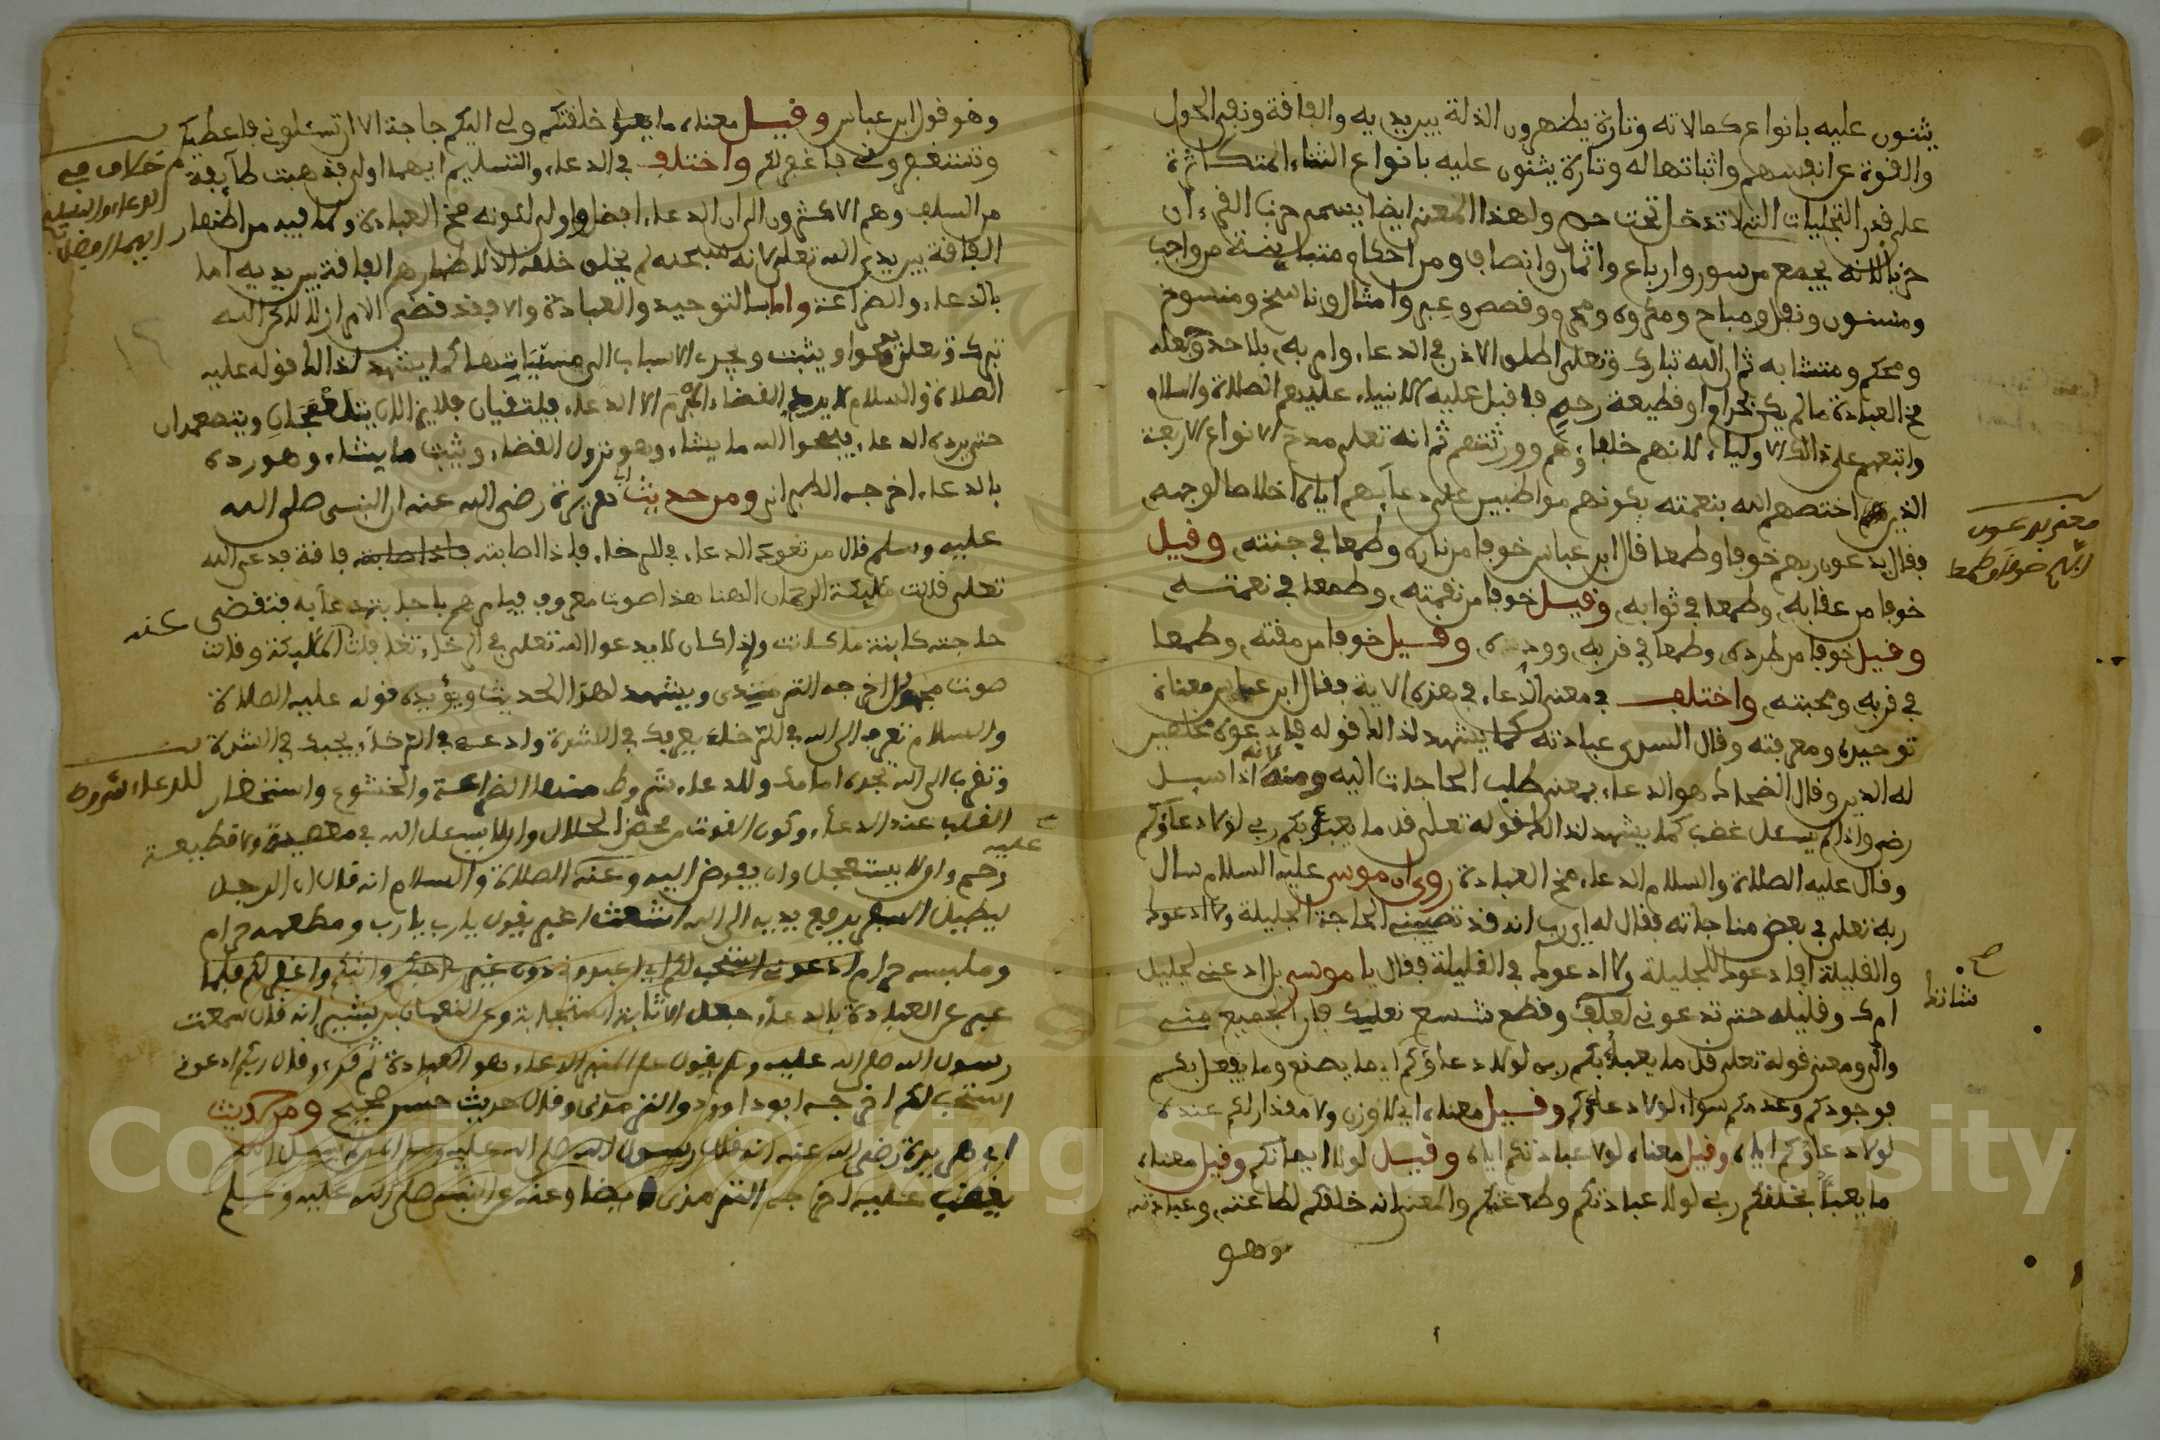 يثنون عليه بانواع كمالاته وتارة يظهرون الذلة بين يديه والفاقة ونفي الحول
والقوة عن انفسهم واثباتها له وتارة يثنون عليه بانواع الثناء المتكاثرة
على قدر التجليات التي لا تدخل تحت حصر ولهذا المعنى ايضا يسمى حزب القرءان
حزبا لانه يجمع من سور وارباع واثمان وانصاف ومن احكام متباينة من واجب
ومسنون ونفل ومباح ومكروه ومحرم وقصص وعبر وامثال وناسخ ومنسوخ
ومحكم ومتشابه ثم ان الله تبارك وتعلى اطلق الاذن في الدعاء وامر به بلا حد وجعله
مخ العبادة ما لم يكن بحرام او قطيعة رحم فاقبل عليه الانبياء عليهم الصلاة والسلام
واتبعهم على ذالك الاولياء لانهم خلفاؤهم وورثتهم ثم انه تعلى مدح الانواع الاربعة
الذين اختصهم الله بنعمته بكونهم مواظبين على دعآئهم اياه اخلاصا لوجهه
فقال يدعون ربهم خوفا وطمعا قال ابن عباس خوفا من ناره وطمعا في جنته وقيل
خوفا من عقابه وطمعا في ثوابه وقيل خوفا من نقمته وطمعا في نعمته
وقيل خوفا من طرده وطمعا في قربه ووده وقيل خوفا من مقته وطمعا
في قربه ومحبته واختلف في معنى الدعاء في هذه الاية فقال ابن عباس معناه
توحيده ومعرفته وقال السدى عبادته كما يشهد لذالك قوله فادعوه مخلصين
له الدين وقال الضحاك هو الدعاء بمعنى طلب الحاجات اليه ومنه لانه اذا سيل
رضي واذا لم يسئل غضب كما يشهد لذالك قوله تعلى قل ما يعبؤ بكم ربي لولا دعاؤكم
وقال عليه الصلاة والسلام الدعاء مخ العبادة روي ان موسى عليه السلام سال
ربه تعلى في بعض مناجاته فقال له اي رب انه قد تصيبني الحاجة الجليلة ولا ادعوك
والقليلة افادعوك للجليلة ولا ادعوك في القليلة فقال يا موسى بل ادعني لجليل
امرك وقليله حتى تدعوني لعلف شاتك وقطع شسع نعليك فان الجميع مني
والي ومعنى قوله تعلى قل ما يعبؤا بكم ربي لولا دعاؤكم اي ما يصنع وما يفعل بكم
فوجودكم وعدمكم سواء لولا دعاؤكم وقيل معناه اي لا وزن ولا مقدار لكم عنده
لولا دعاؤكم اياه وقيل معناه لولا عبادتكم اياه وقيل لولا ايمانكم وقيل معناه
ما يعبأ بخلقكم ربي لولا عبادتكم وطاعتكم والمعنى انه خلقكم لطاعته وعبادته
وهو
معنى يدعون
ربهم خوفا وطمعا
شاتك
صح
وهو قول ابن عباس وقيل معناه ما خلقتكم ولي اليكم حاجة الا ان تسئلوني فاعطيكم
وتستغفروني فاغفر لكم واختلف في الدعاء والتسليم ايهما اولى فذهبت طآئفة
من السلف وهم الاكثرون الى ان الدعاء افضل واولى لكونه مخ العبادة ولما فيه من اظهار
الفاقة بين يدي الله تعلى لانه سبحنه لم يخلق خلقه الا لاظهارهم الفاقة بين يديه اما
بالدعاء والضراعة واما بالتوحيد والعبادة والا فقد قضى الامر ازلا لاكن الله
تبرك وتعلى يمحوا ويثبت ويجري الاسباب الى مسبباتها كما يشهد لذالك قوله عليه
الصلاة والسلام لا يرد القضاء المبرم الا الدعاء فيلتقيان فلا يزالان يتدافعان ويتصعدان
حتى يرده الدعاء فيمحوا الله ما يشاء وهو نزول القضاء ويثبت ما يشاء وهو رده
بالدعاء اخرجه الطبراني ومن حديث ابي هريرة رضي الله عنه ان النبي صلى الله
عليه وسلم قال من تعود الدعاء في الرخاء فاذا اصابته فاقة فدعى الله
تعلى قالت مليكة الرحمان الهنا هذا صوت معروف فيامرهم باجابة دعآئه فتقضى
حاجته كاينة ما كانت واذا كان لا يدعوا الله تعلى في الرخاء قالت المليكة
صوت مجهول اخرجه الترمذى ويشهد لهذا الحديث ويؤيده قوله عليه الصلاة
والسلام تعرف الى الله في الرخاء يعرفك في الشدة وادعه في الرخاء يجبك في الشدة
وتقرب الى الله تجده امامك وللدعاء شروط منها الضراعة والخشوع واستحضار
القلب عند الدعاء وكون القوت من محض الحلال وان لا يسئل الله في معصية ولا قطيعة
رحم وان لا يستعجل وان يفوض اليه وعنه عليه الصلاة والسلام انه قال ان الرجل
ليطيل السفر يرفع يديه الى الله اشعث اغبر يقول يا رب يا رب ومطعمه حرام
وملبسه حرام ادعوني استجب لكم اي اعبدوني دون غيري اجبكم واثبكم واغفر لكم فلما
عبر عن العبادة بالدعاء جعل الاثابة استجابة وعن النعمان بن بشير انه قال سمعت
رسول الله صلى الله عليه وسلم يقول على المنبر الدعاء هو العبادة ثم قرء وقال ربكم ادعوني
استجب لكم اخرجه ابو داوود والترمذى وقال حديث حسن صحيح ومن حديث
ابي هريرة رضي الله عنه انه قال رسول الله صلى الله عليه وسلم من لم يسئل الله
يغضب عليه اخرجه الترمذى ايضا وعنه عن النبي صلى الله عليه وسلم
خلاف في
الدعاء والتسليم
ايهما افضل
عنه
للدعاء شروط
عليه
Copyright © King Saud University